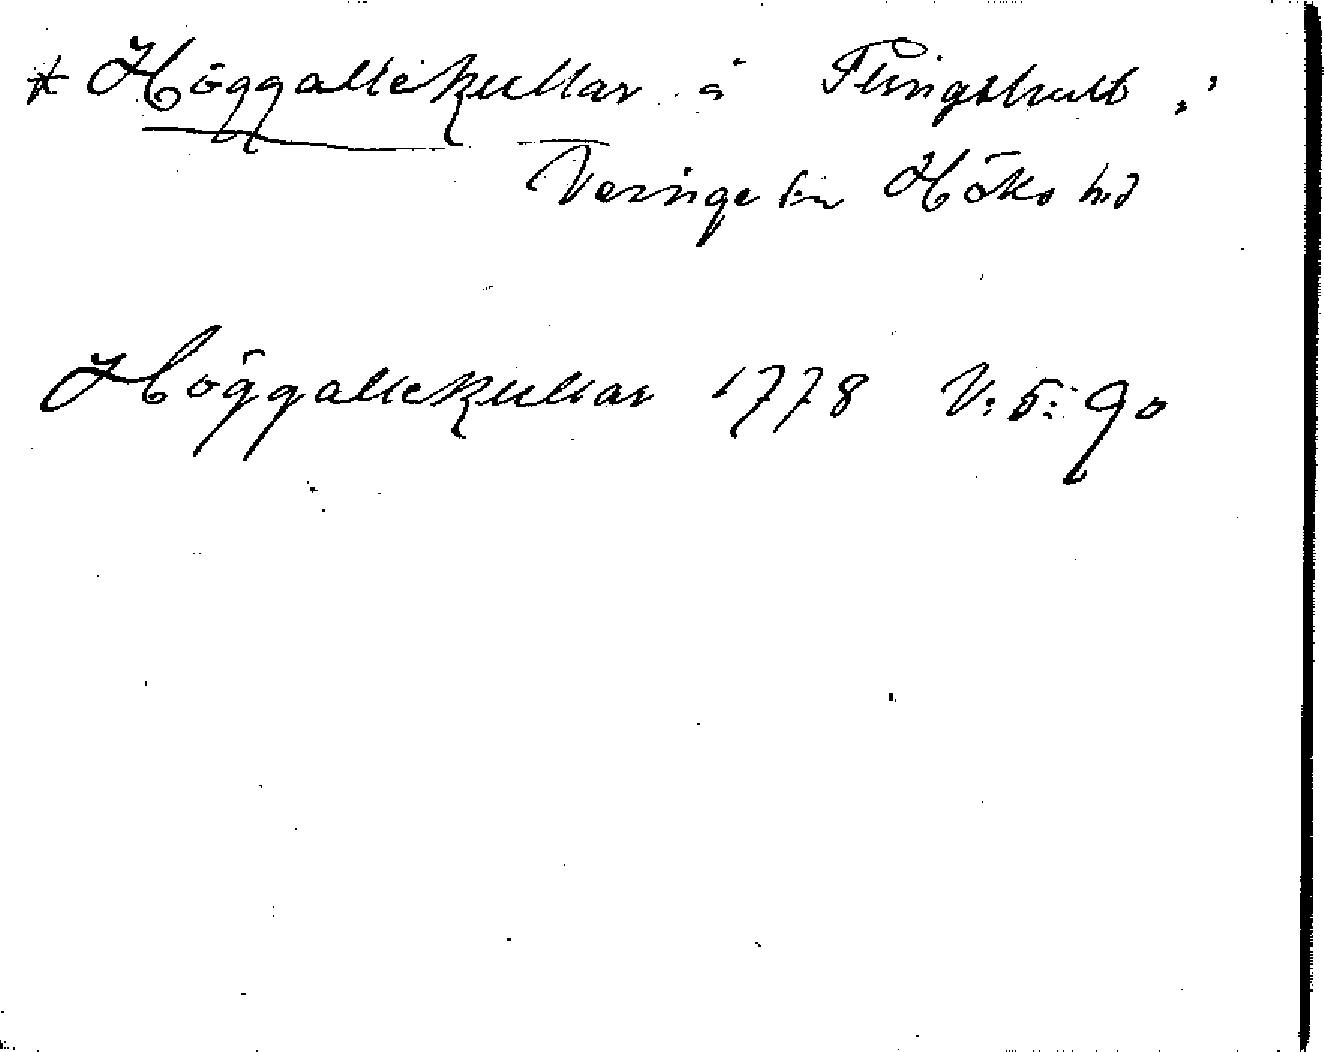 * Höggallekullar å Flingshult,
Veinge sn Höks hd
Höggallekullar 1778 V:5:90